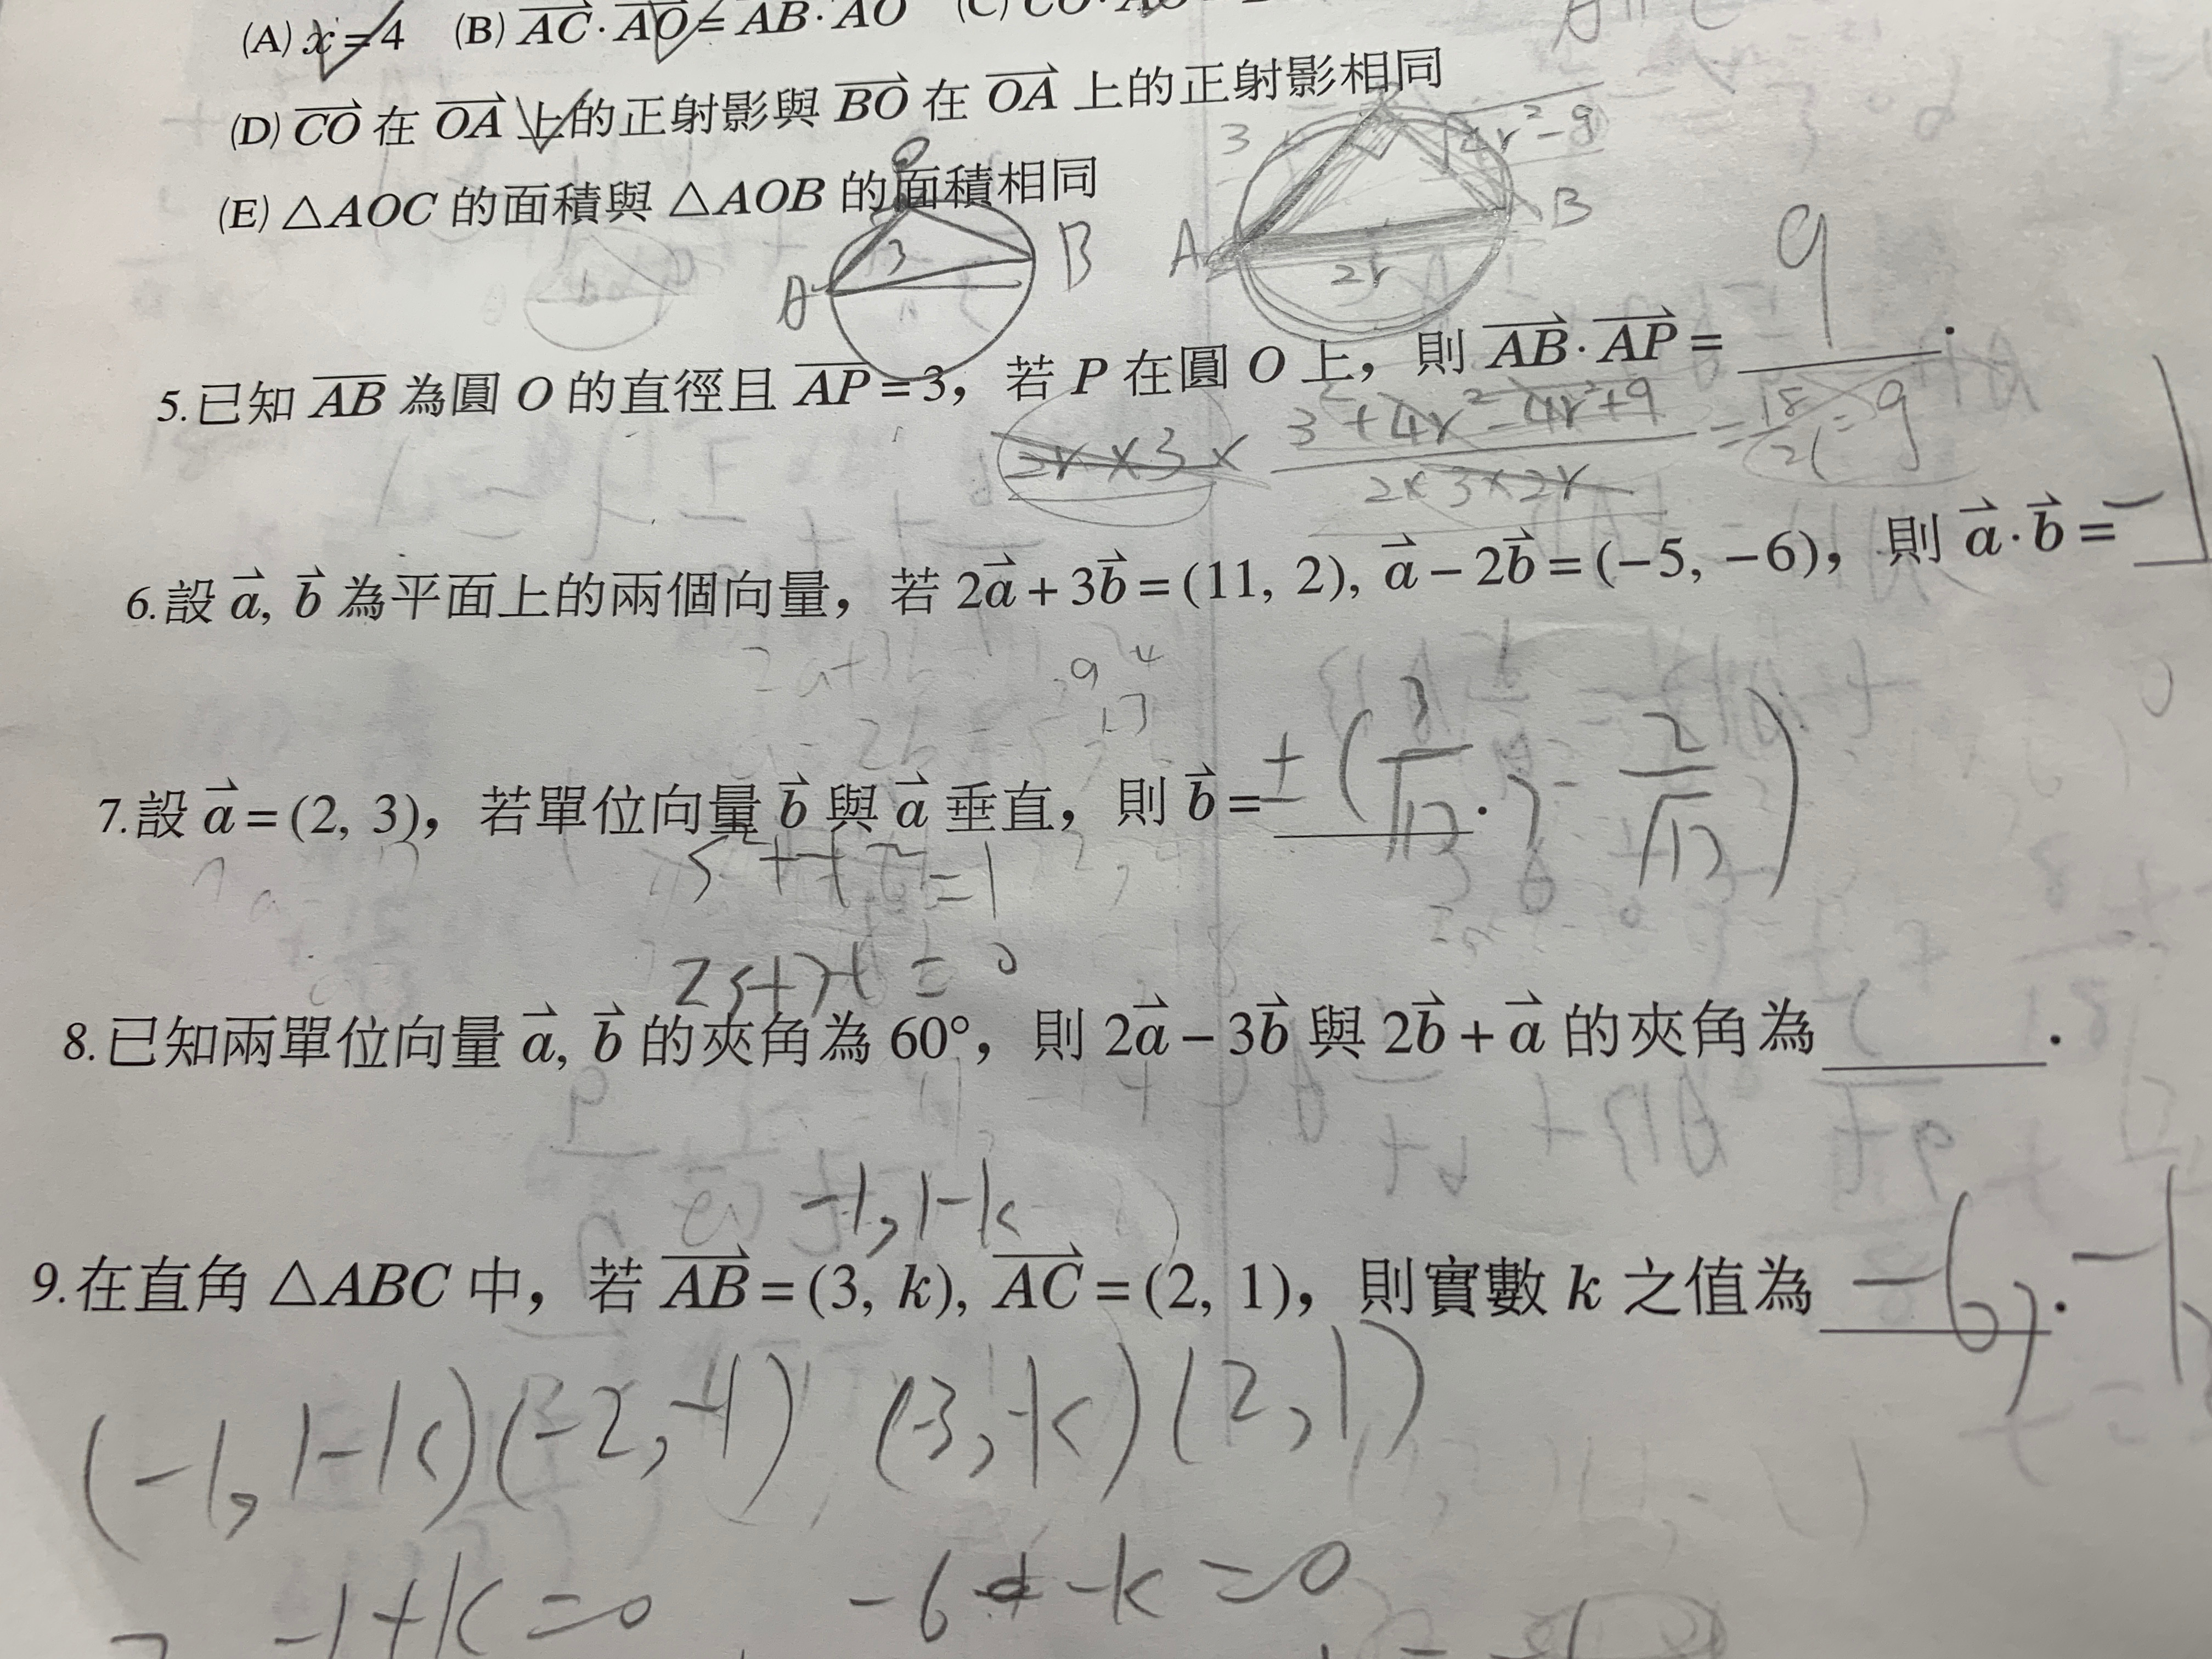 (A) x = 4 (B) AC · AO = AB · AO (C) CO ·
(D) CO 在 OA 上的正射影與 BO 在 OA 上的正射影相同
(E) △AOC 的面積與 △AOB 的面積相同
3 B A
3 A B 2r
9
5.已知 AB 為圓 O 的直徑且 AP = 3，若 P 在圓 O 上，則 AB · AP = .
2r × 3 ×
2×3×2r
6.設 a, b 為平面上的兩個向量，若 2a + 3b = (11, 2), a − 2b = (−5, −6)，則 a · b =
9 4
13
7.設 a = (2, 3)，若單位向量 b 與 a 垂直，則 b = ± (3/√13, −2/√13) .
s² + t² = 1
2s + 3t = 0
8.已知兩單位向量 a, b 的夾角為 60°，則 2a − 3b 與 2b + a 的夾角為 .
−1, 1−k
9.在直角 △ABC 中，若 AB = (3, k), AC = (2, 1)，則實數 k 之值為 −6, .
(−1, 1−k)(−2, −1) (−3, −k)(2, 1)
−1+k=0 −6 −k=0